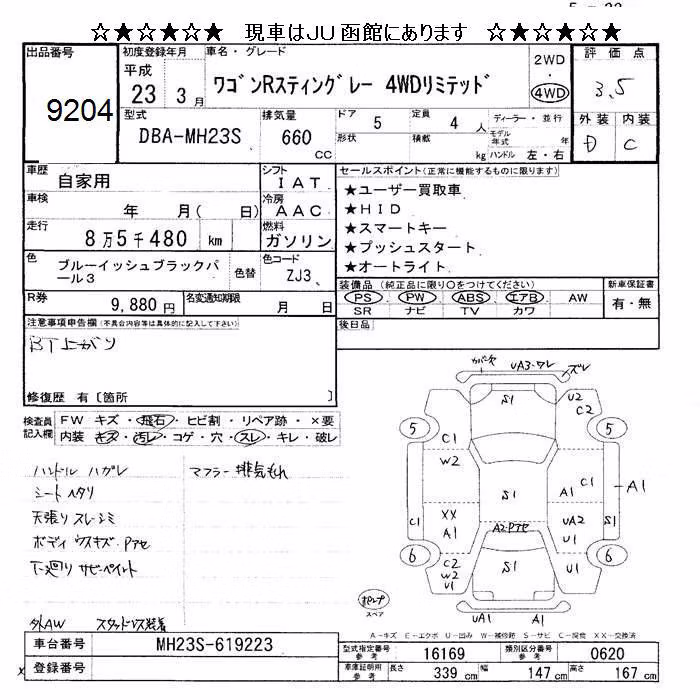 ☆★☆★☆★ 現車はJU函館にあります ☆★☆★☆★
出品番号
9204
初度登録年月
平成
23 3月
車名・グレード
ワゴンRスティングレー 4WDリミテッド
2WD
・
4WD
評価点
3.5
型式
DBA-MH23S
排気量
660
CC
ドア
5
定員
4人
形状
積載
kg
ディーラー・並行
モデル年式 年
ハンドル 左・右
外装 内装
D C
車歴
自家用
シフト
IAT
車検
年 月( 日)
冷房
AAC
走行
8万5千480 km
燃料
ガソリン
色
ブルーイッシュブラックパール3
色替
色コード
ZJ3
R券
9,880円
名変通知期限
月 日
セールスポイント(正常に機能するものに限ります)
★ユーザー買取車
★HID
★スマートキー
★プッシュスタート
★オートライト
装備品 (純正品に限り○をつけてください)
PS PW ABS エアB AW
SR ナビ TV カワ
新車保証書
有・無
後日品
注意事項申告欄(不具合内容等は具体的に記入して下さい)
BT上がり
修復歴 有〔箇所 〕
検査員記入欄
FW キズ・飛石・ヒビ割・リペア跡・×要
内装 キズ・汚レ・コゲ・穴・スレ・キレ・破レ
ハンドル ハガレ
シート ヘタリ
天張り スレ シミ
ボディ ウスキズ Pアセ
下廻り サビ・ペイント
マフラー 排気もれ
外AW スタッドレス装着
カバー欠 UA3・ワレ ズレ
S1
U2
C2
5
5
C1
W2
S1
A1
C1
A1
XX
A1
C1
A2・Pアセ
UA2
U1
S1
6
6
C2
W2
U1
S1
U1
UA1
A1
スペア
A-キズ E-エクボ U-凹み W-補修跡 S-サビ C-腐食 XX-交換済
車台番号
MH23S-619223
登録番号
型式指定番号
参考
16169
類別区分番号
参考
0620
車庫証明用
参考
長さ
339 cm
幅
147 cm
高さ
167 cm